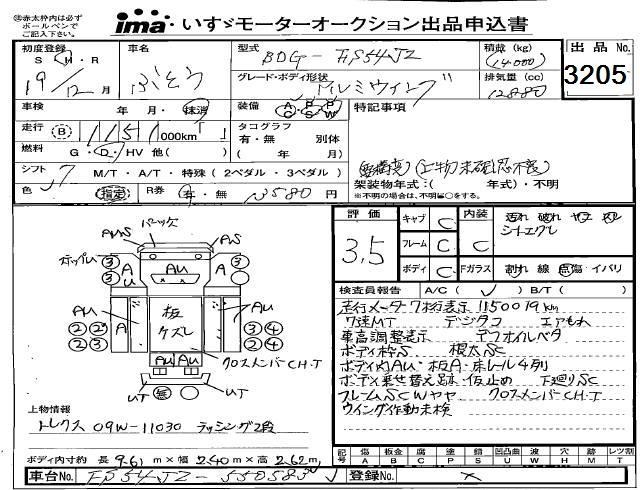 ㊟赤太枠内は必ず
ボールペンで
ご記入下さい。
ima いすゞモーターオークション出品申込書
初度登録
S H R
19/12 月
車名
型式
BDG-FS54JZ
グレード・ボディ形状
アルミウイング
積載 (kg)
(14000)
排気量 (cc)
12880
出品 No.
3205
車検 年 月・抹消
装備 A/C P/S P/W
特記事項
走行 B 1151 000km
タコグラフ
有・無 別体
( 年 月)
燃料 G・D・HV 他( )
シフト 7 M/T・A/T・特殊 (2ペダル・3ペダル)
架装物年式:( 年式)・不明
※不明の場合は、不明に○をする。
色 (指定) R券 有・無 13580 円
評価
3.5
キャブ C
フレーム C
ボディ C
内装 C
Fガラス
汚れ 破れ
シートエグレ
割れ 線 点傷 イバリ
検査員報告 A/C ( ) B/T ( )
走行メーター7桁表示 1150019km
7速MT デジタコ エアもれ
車高調整表示 デフオイルベタ
ボディ枠S 根太SC
ボディ内AU・板A・床レール4列
ボディ乗せ替え跡・仮止め 下廻りSC
フレームSCWヤヤ クロスメンバーCH.T
ウイング作動未検
バーツ欠
AUS
AS
AU
ホッパU
A
U
AU
A
板
ケズレ
クロスメンバーCH.T
AU AU
UT
無
UT
上物情報
トレクス 09W-11030 ラッシング2段
ボディ内寸約 長 9.61 m × 幅 2.40 m × 高 2.62 m
記号 傷 A 板金 B 腐 C 塗 P サビ S 凹凸曲 U 波 W 穴 H 飛 M レツ割 T
車台No. FS54JZ-550583
登録No. ×